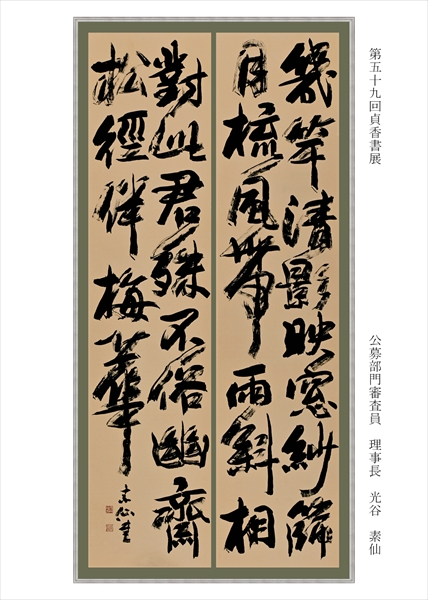 第五十九回貞香書展
公募部門審査員　理事長　光谷　素仙
幾竿清影映窓紗篩
月梳風帶雨斜相
對此君殊不俗幽齋
松徑伴梅華
素仙書